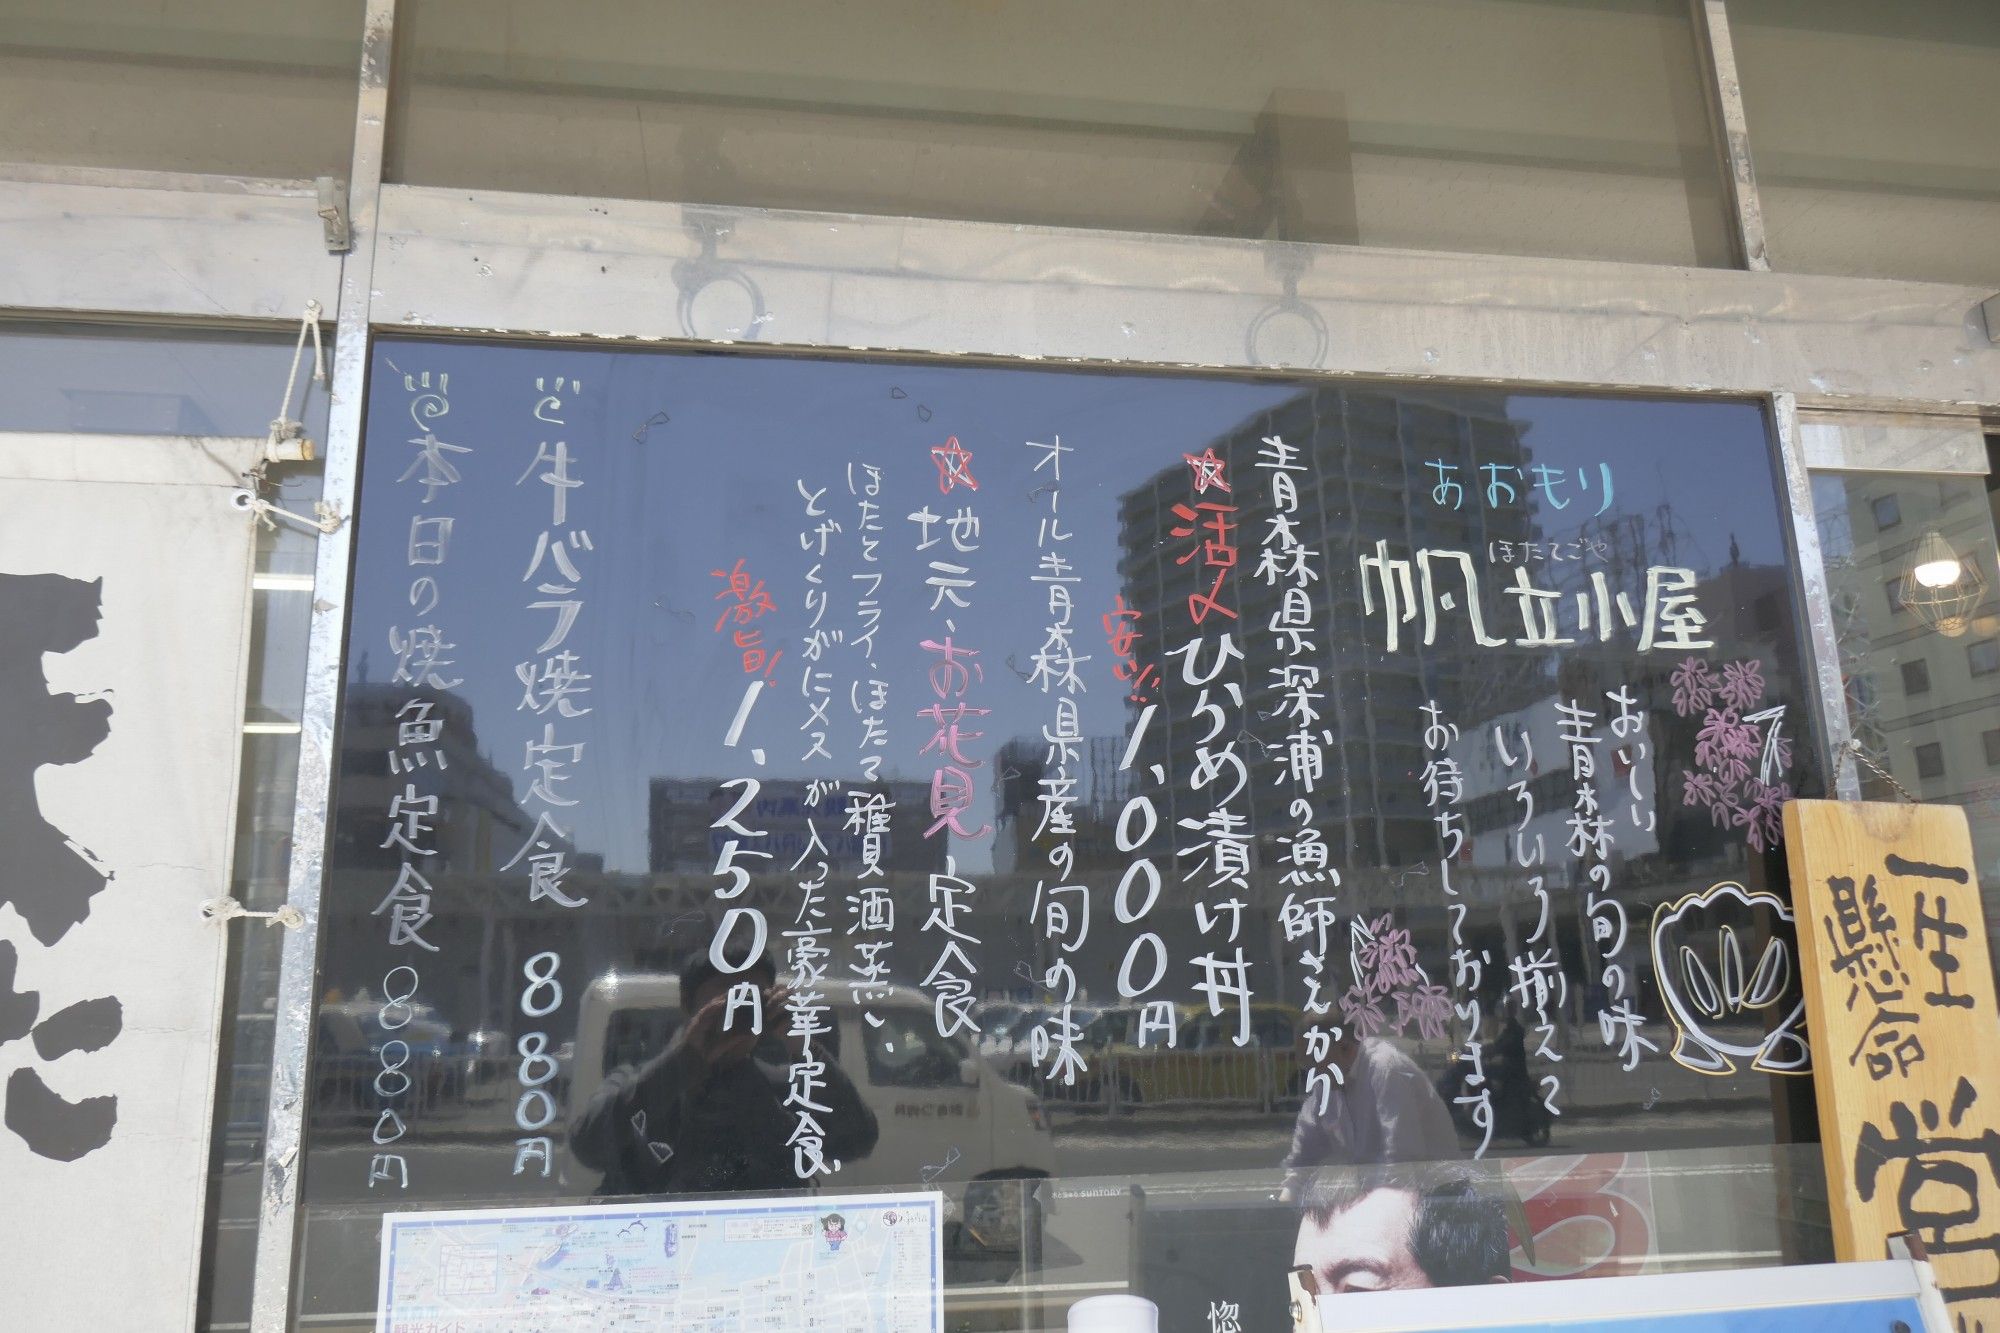 あおもり
ほたてごや
帆立小屋
おいしい
青森の旬の味
いろいろ揃えて
お待ちしております
青森県深浦の漁師さんから
☆活〆ひらめ漬け丼
安い!! 1,000円
オール青森県産の旬の味
☆地元、お花見定食
ほたてフライ、ほたて稚貝酒蒸し、
とげくりがにメスが入った豪華定食
激旨! 1,250円
牛バラ焼定食 880円
本日の焼魚定食 880円
一生
懸命
営
観光ガイド
水と生きる SUNTORY
惚